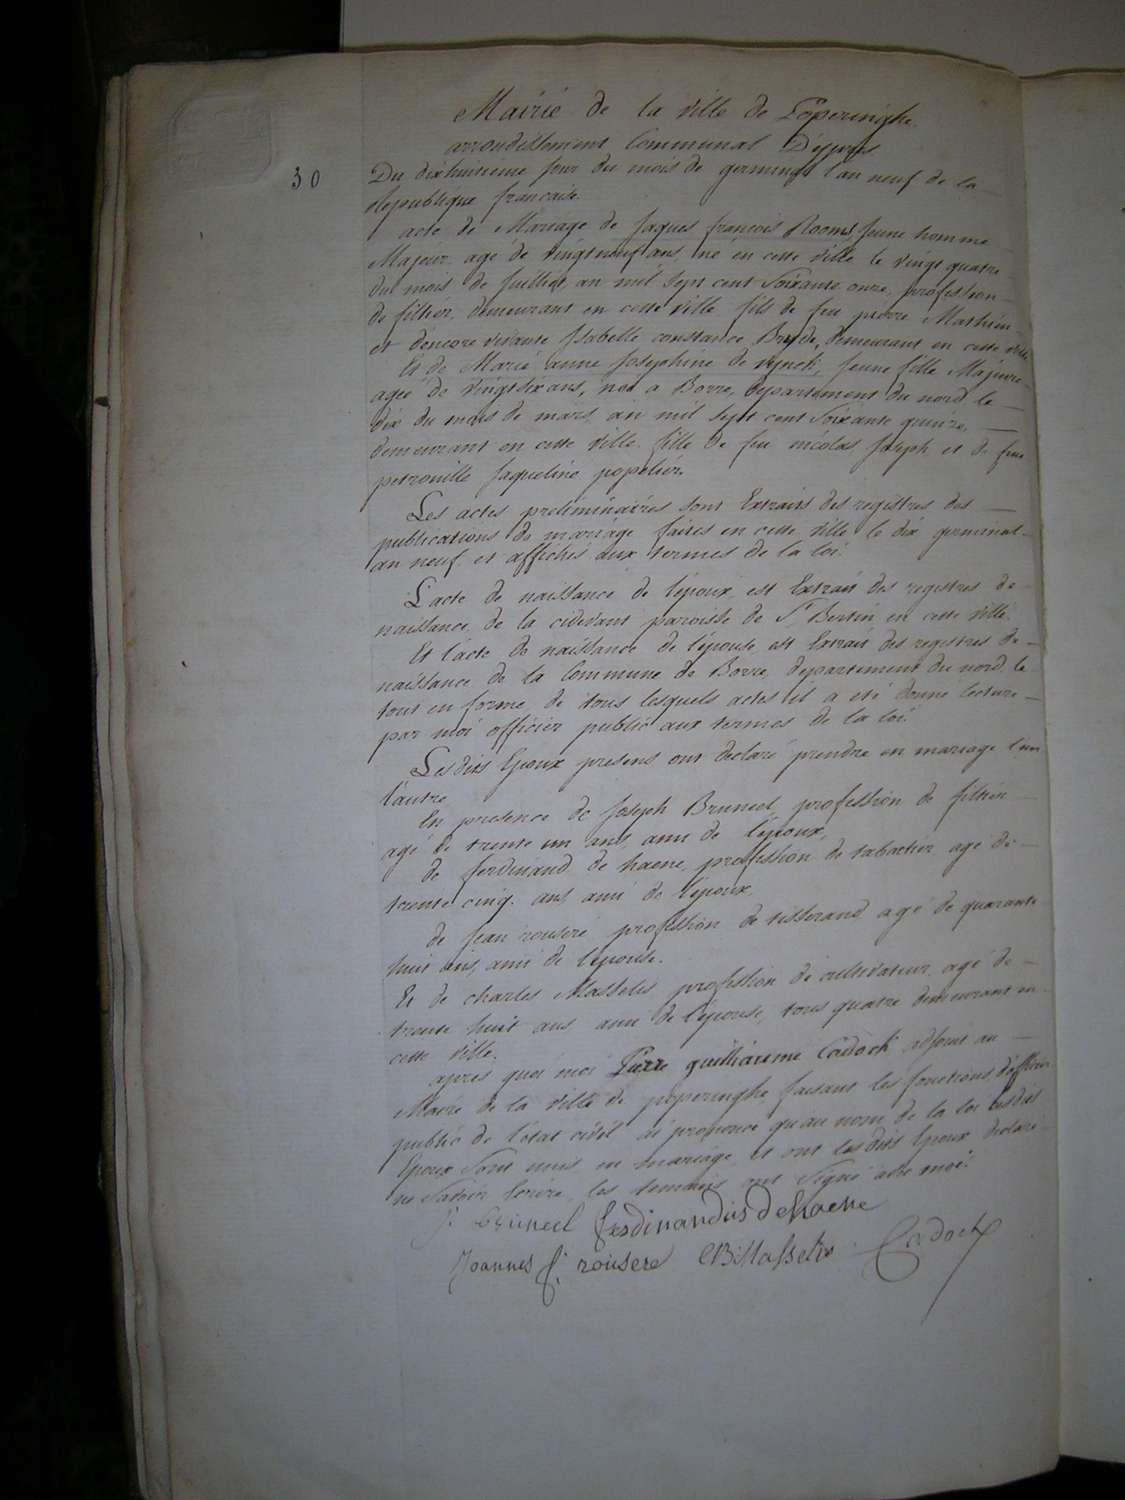 Mairie de la ville de Poperinghe
arrondissement Communal D'ypres
30
Du dixhuitieme jour du mois de germinal l'an neuf de la
republique francaise.
acte de Mariage de Jaques francois Rooms, Jeune homme
Majeur, agé de vingtneuf ans, né en cette ville le vingt quatre
du mois de Juilliet, an mil sept cent Soixante onze, profession
de filtier, demeurant en cette ville, fils de feu pierre Mathieu
et d'encore vivante Isabelle constance Bryde, demeurant en cette ville
Et de Marie anne Josephine de vynck, Jeune fille Majeure
ageé de vingtsix ans, neé a Borre, departement du nord le
dix du mois de mars, an mil sept cent Soixante quinze,
demeurant en cette ville fille de feu nicolas Joseph et de feue
petronille Jaqueline popelier.
Les actes preliminaires sont Extraits des registres des
publications de mariage faites en cette ville le dix germinal
an neuf, et affichés aux termes de la loi.
L'acte de naissance de l'epoux, est Extrait des registres de
naissance, de la cidevant paroisse de St Bertin en cette ville.
Et l'acte de naissance de l'epouse, est Extrait des registres de
naissance de la Commune de Borre, departement du nord, le
tout en forme, de tous lesquels actes il a eté donné lecture
par moi officier public aux termes de la loi.
Lesdits Epoux presens ont declaré prendre en mariage l'un
l'autre,
En presence de Joseph Bruneel, profession de filtier
agé de trente un ans, ami de l'epoux,
de ferdinand de haene, profession de tabactier agé de
trente cinq ans ami de l'epoux,
de Jean rouseré profession de tisserand agé de quarante
huit ans, ami de l'epouse.
Et de charles Masselis profession de cultivateur, agé de
trente huit ans ami de l'epouse, tous quatre demeurant en
cette ville.
apres quoi moi Pierre guilliaeme Cadock adjoint au
Maire de la ville de poperinghe faisant les fonctions d'officier
public de l'etat civil ai prononcé qu'au nom de la loi lesdits
Epoux Sont unis en mariage, et ont lesdits Epoux declaré
ne Savoir Ecrire, les temoins ont Signé avec moi.
J. Bruneel ferdinandus dehaene
Joannes f. rousere CB Masselis Cadock